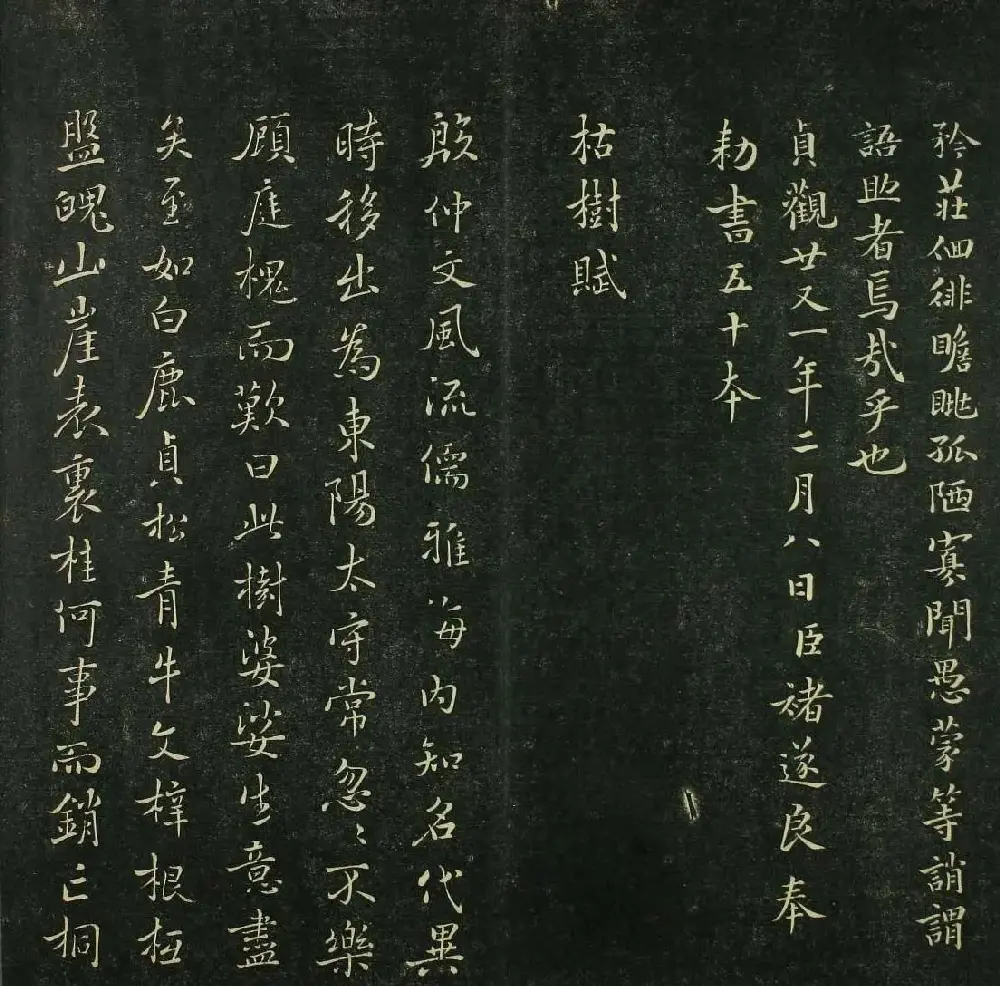 矜莊佪徘瞻眺孤陋寡聞愚蒙等誚謂
語助者焉哉乎也
貞觀廿又一年二月八日臣褚遂良奉
勑書五十本
枯樹賦
殷仲文風流儒雅海内知名代異
時移出為東陽太守常忽〻不樂
顧庭槐而歎曰此樹婆娑生意盡
矣至如白鹿貞松青牛文梓根柢
盤魄山崖表裏桂何事而銷亡桐